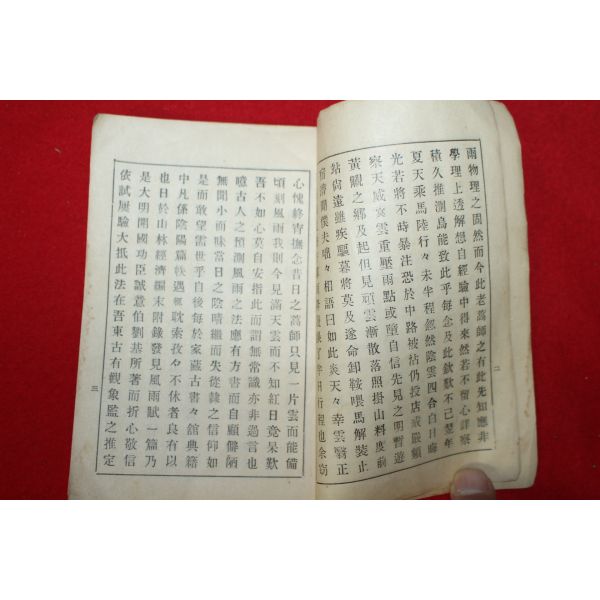 雨物理之固然而今此老蒿師之有此先知應非
學理上透解想自經驗中得來然若不留心詳察
積久推測烏能致此乎每念及此欽歎不已翌年
夏天乘馬陸行々未半程忽然陰雲四合白日晦
光若將不時暴注恐於中路被沾仍投店或嚴頼
察天威寅雲重壓雨點或墮自信先見之明暫遊
黃𪏭之鄉及起但見頑雲漸散落照掛山料度前
站尙遠雖疾驅暮將莫及遂命卸鞍喂馬解裝止
宿
僕夫
々相語曰如此炎天々幸雲翳正
行程也余竊
二
心愧終宵撫念昔日之蒿師只見一片雲而能備
頃刻風雨我則今見滿天雲而不知紅日竟呆歎
吾不如心莫自安指此而謂無常識亦非過言也
噫古人之預測風雨之法應有方書而自顧僻陋
無聞小而味當日之陰晴繼而失從隷之信仰如
是而敢望需世乎自後每於家藏古書々舘典籍
中凡係陰陽篇帙遇輒耽索孜々不休者良有以
也日於山林經濟編末附錄發見風雨賦一篇乃
是大明開國功臣誠意伯劉基所著而折心敬信
依試屢驗大抵此法在吾東古有觀象監之推定
三